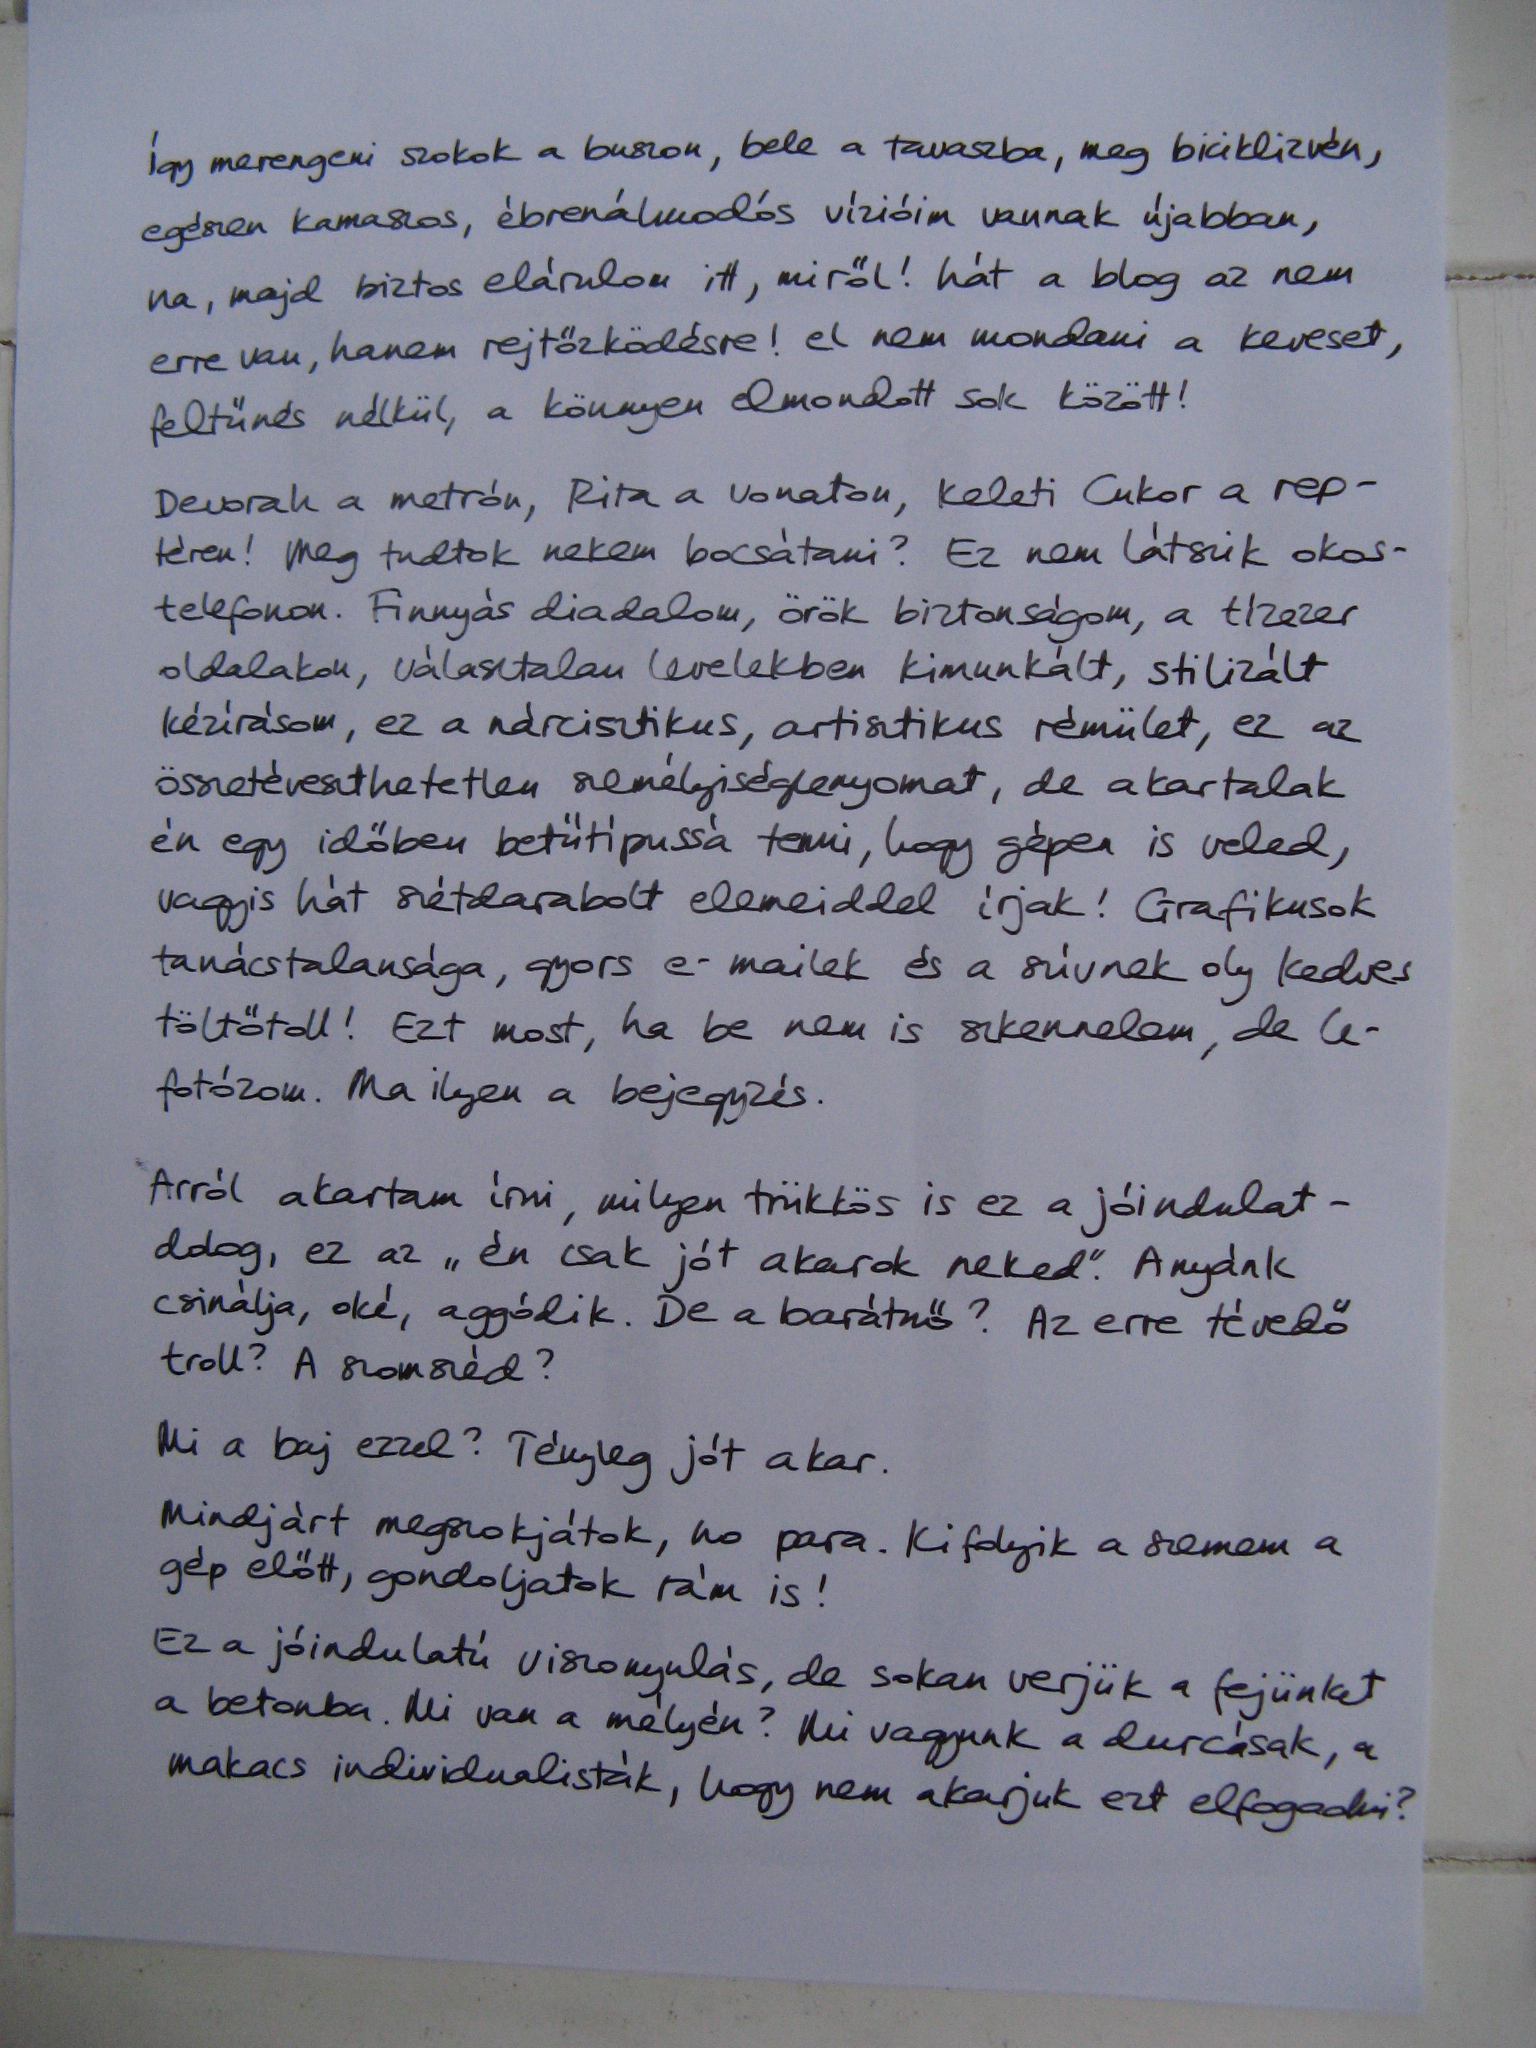 Így merengeni szokok a buszon, bele a tavaszba, meg biciklizvén,
egészen kamaszos, ébrenálmodós vízióim vannak újabban,
na, majd biztos elárulom itt, miről! hát a blog az nem
erre van, hanem rejtőzködésre! el nem mondani a keveset,
feltűnés nélkül, a könnyen elmondott sok között!
Devorah a metrón, Rita a vonaton, Keleti Cukor a rep-
téren! Meg tudtok nekem bocsátani? Ez nem látszik okos-
telefonon. Finnyás diadalom, örök biztonságom, a tízezer
oldalakon, választalan levelekben kimunkált, stilizált
kézírásom, ez a nárcisztikus, artisztikus rémület, ez az
összetéveszthetetlen személyiséglenyomat, de akartalak
én egy időben betűtípussá tenni, hogy gépen is veled,
vagyis hát szétdarabolt elemeiddel írjak! Grafikusok
tanácstalansága, gyors e-mailek és a szívnek oly kedves
töltőtoll! Ezt most, ha be nem is szkennelem, de le-
fotózom. Ma ilyen a bejegyzés.
Arról akartam írni, milyen trükkös is ez a jóindulat-
dolog, ez az „én csak jót akarok neked". Anyánk
csinálja, oké, aggódik. De a barátnő? Az erre tévedő
troll? A szomszéd?
Mi a baj ezzel? Tényleg jót akar.
Mindjárt megszokjátok, no para. Kifolyik a szemem a
gép előtt, gondoljatok rám is!
Ez a jóindulatú viszonyulás, de sokan verjük a fejünket
a betonba. Mi van a mélyén? Mi vagyunk a durcásak, a
makacs individualisták, hogy nem akarjuk ezt elfogadni?